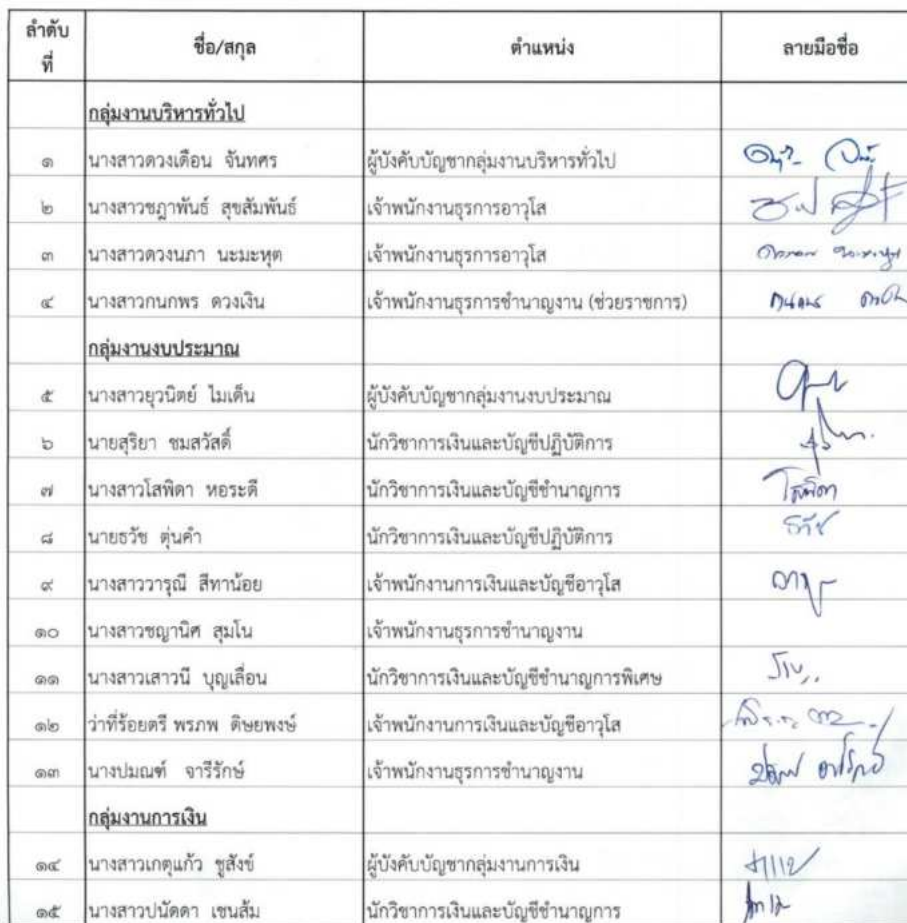 ลำดับที่ ชื่อ/สกุล ตำแหน่ง ลายมือชื่อ
กลุ่มงานบริหารทั่วไป
๑ นางสาวดวงเดือน จันทศร ผู้บังคับบัญชากลุ่มงานบริหารทั่วไป
๒ นางสาวชฎาพันธ์ สุขสัมพันธ์ เจ้าพนักงานธุรการอาวุโส
๓ นางสาวดวงนภา นะมะหุต เจ้าพนักงานธุรการอาวุโส
๔ นางสาวกนกพร ดวงเงิน เจ้าพนักงานธุรการชำนาญงาน (ช่วยราชการ)
กลุ่มงานงบประมาณ
๕ นางสาวยุวนิตย์ ไมเด็น ผู้บังคับบัญชากลุ่มงานงบประมาณ
๖ นายสุริยา ชมสวัสดิ์ นักวิชาการเงินและบัญชีปฏิบัติการ
๗ นางสาวโสพิดา หอระดี นักวิชาการเงินและบัญชีชำนาญการ โสพิดา
๘ นายธวัช ตุ่นคำ นักวิชาการเงินและบัญชีปฏิบัติการ ธวัช
๙ นางสาววารุณี สีทาน้อย เจ้าพนักงานการเงินและบัญชีอาวุโส
๑๐ นางสาวชญานิศ สุมโน เจ้าพนักงานธุรการชำนาญงาน
๑๑ นางสาวเสาวนี บุญเลื่อน นักวิชาการเงินและบัญชีชำนาญการพิเศษ
๑๒ ว่าที่ร้อยตรี พรภพ ดิษยพงษ์ เจ้าพนักงานการเงินและบัญชีอาวุโส
๑๓ นางปมณฑ์ จารีรักษ์ เจ้าพนักงานธุรการชำนาญงาน
กลุ่มงานการเงิน
๑๔ นางสาวเกตุแก้ว ชูสังข์ ผู้บังคับบัญชากลุ่มงานการเงิน
๑๕ นางสาวปนัดดา เซนส้ม นักวิชาการเงินและบัญชีชำนาญการ